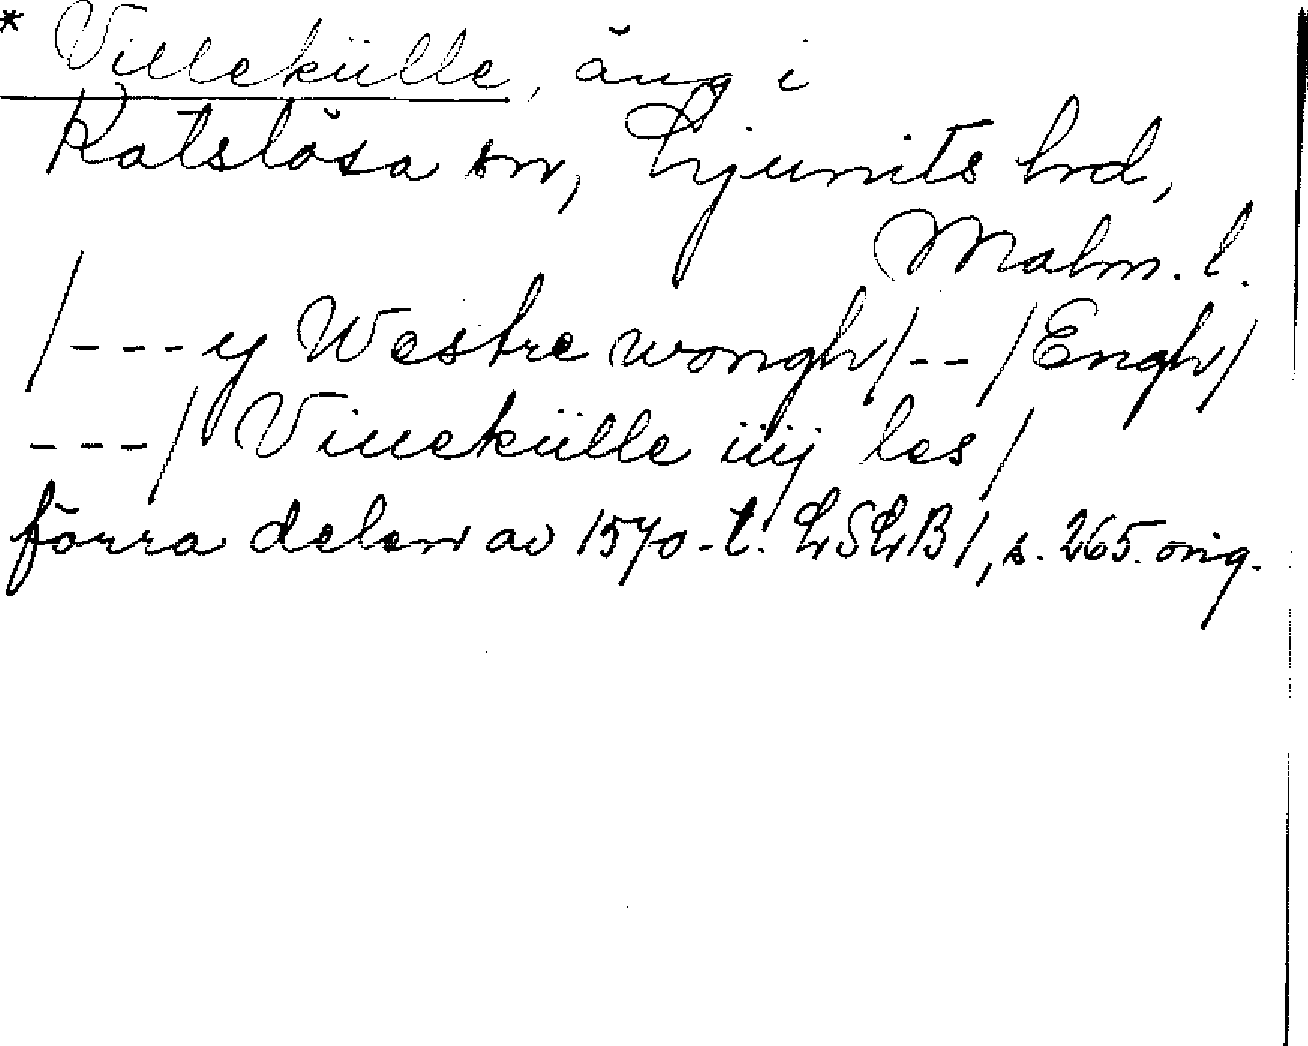 * Villekülle, äng i
Katslösa sn, Ljunits hd,
Malm. l.
/---y Westre wongh/--/Engh/
---/ Villekülle iiij les/
förra delen av 1570-t. LSLB1, s. 265. orig.